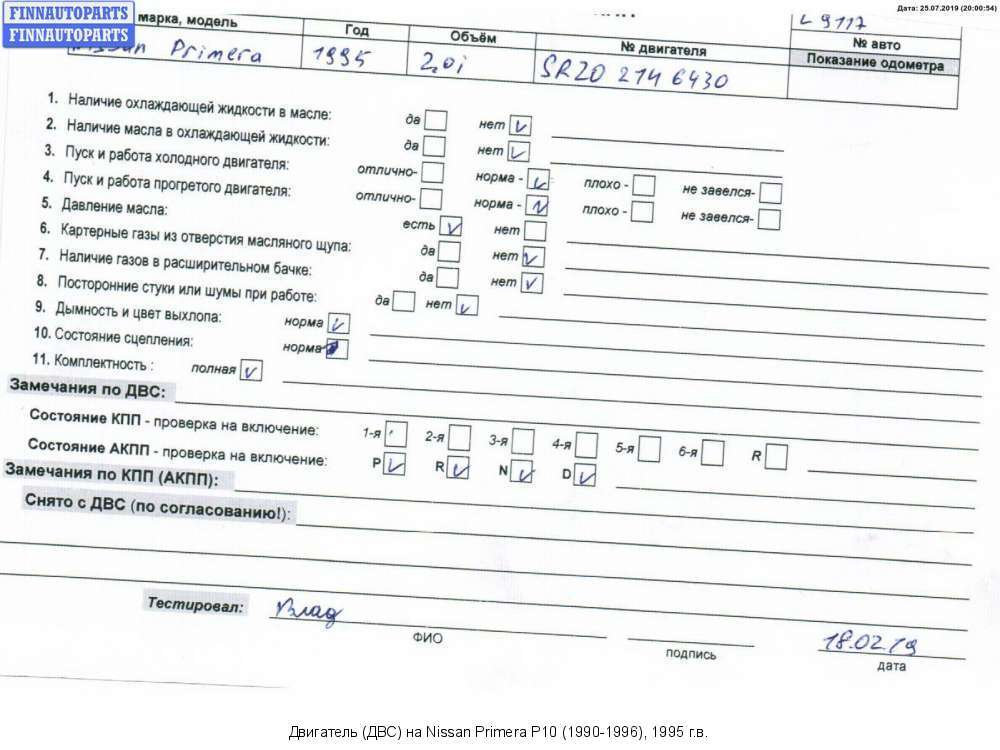 FINNAUTOPARTS
FINNAUTOPARTS
Дата: 25.07.2019 (20:00:54)
марка, модель Год Объём № двигателя L 9117
№ авто
Nissan Primera 1995 2,0i SR20 2146430 Показание одометра
1. Наличие охлаждающей жидкости в масле: да нет V
2. Наличие масла в охлаждающей жидкости: да нет V
3. Пуск и работа холодного двигателя: отлично- норма - V плохо - не завелся-
4. Пуск и работа прогретого двигателя: отлично- норма - V плохо - не завелся-
5. Давление масла: есть V нет
6. Картерные газы из отверстия масляного щупа: да нет V
7. Наличие газов в расширительном бачке: да нет V
8. Посторонние стуки или шумы при работе: да нет V
9. Дымность и цвет выхлопа: норма V
10. Состояние сцепления: норма
11. Комплектность : полная V
Замечания по ДВС:
Состояние КПП - проверка на включение: 1-я 2-я 3-я 4-я 5-я 6-я R
Состояние АКПП - проверка на включение: P V R V N V D V
Замечания по КПП (АКПП):
Снято с ДВС (по согласованию!):
Тестировал: Влад 18.02.19
ФИО подпись дата
Двигатель (ДВС) на Nissan Primera P10 (1990-1996), 1995 г.в.